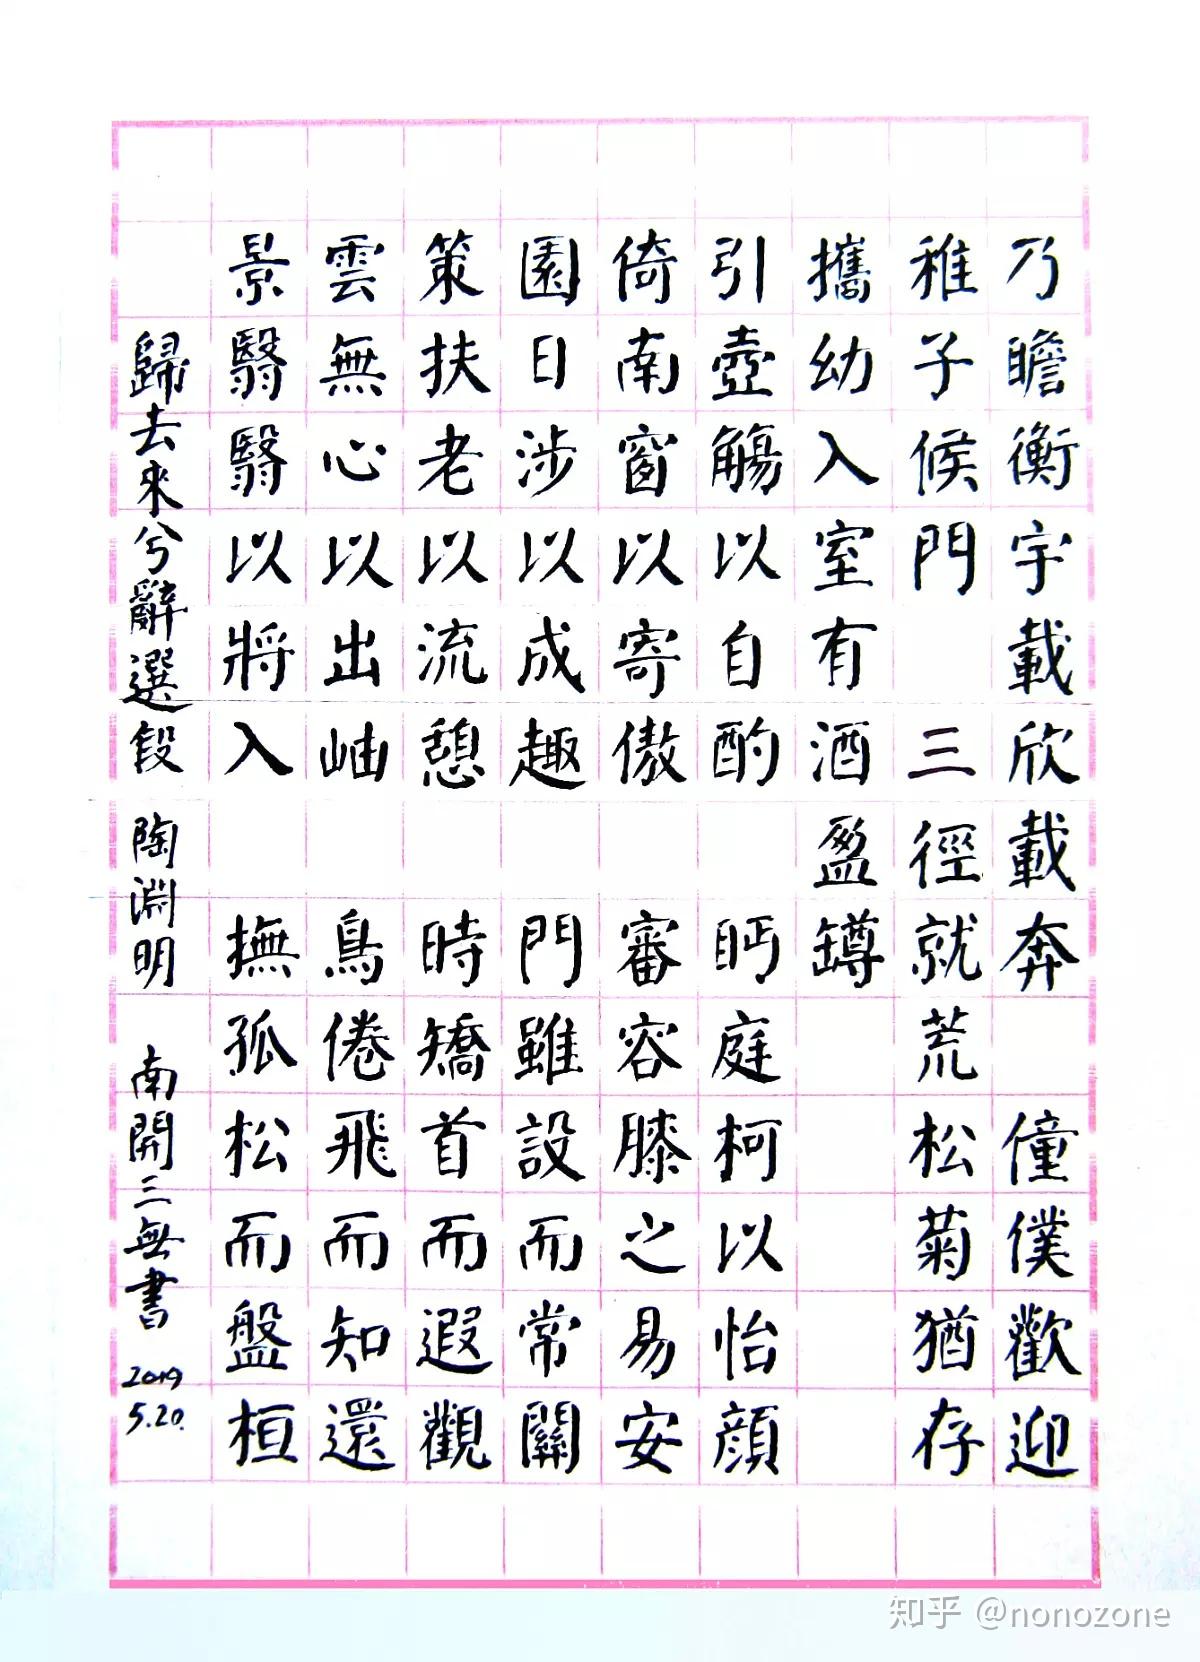 乃瞻衡宇載欣載奔 僮僕歡迎
稚子候門 三徑就荒松菊猶存
攜幼入室有酒盈罇
引壺觴以自酌 眄庭柯以怡顔
倚南窗以寄傲 審容膝之易安
園日涉以成趣 門雖設而常關
策扶老以流憩 時矯首而遐觀
雲無心以出岫 鳥倦飛而知還
景翳翳以將入 撫孤松而盤桓
歸去來兮辭選段 陶淵明 南開三無書 2019 5.20.
知乎 @nonozone